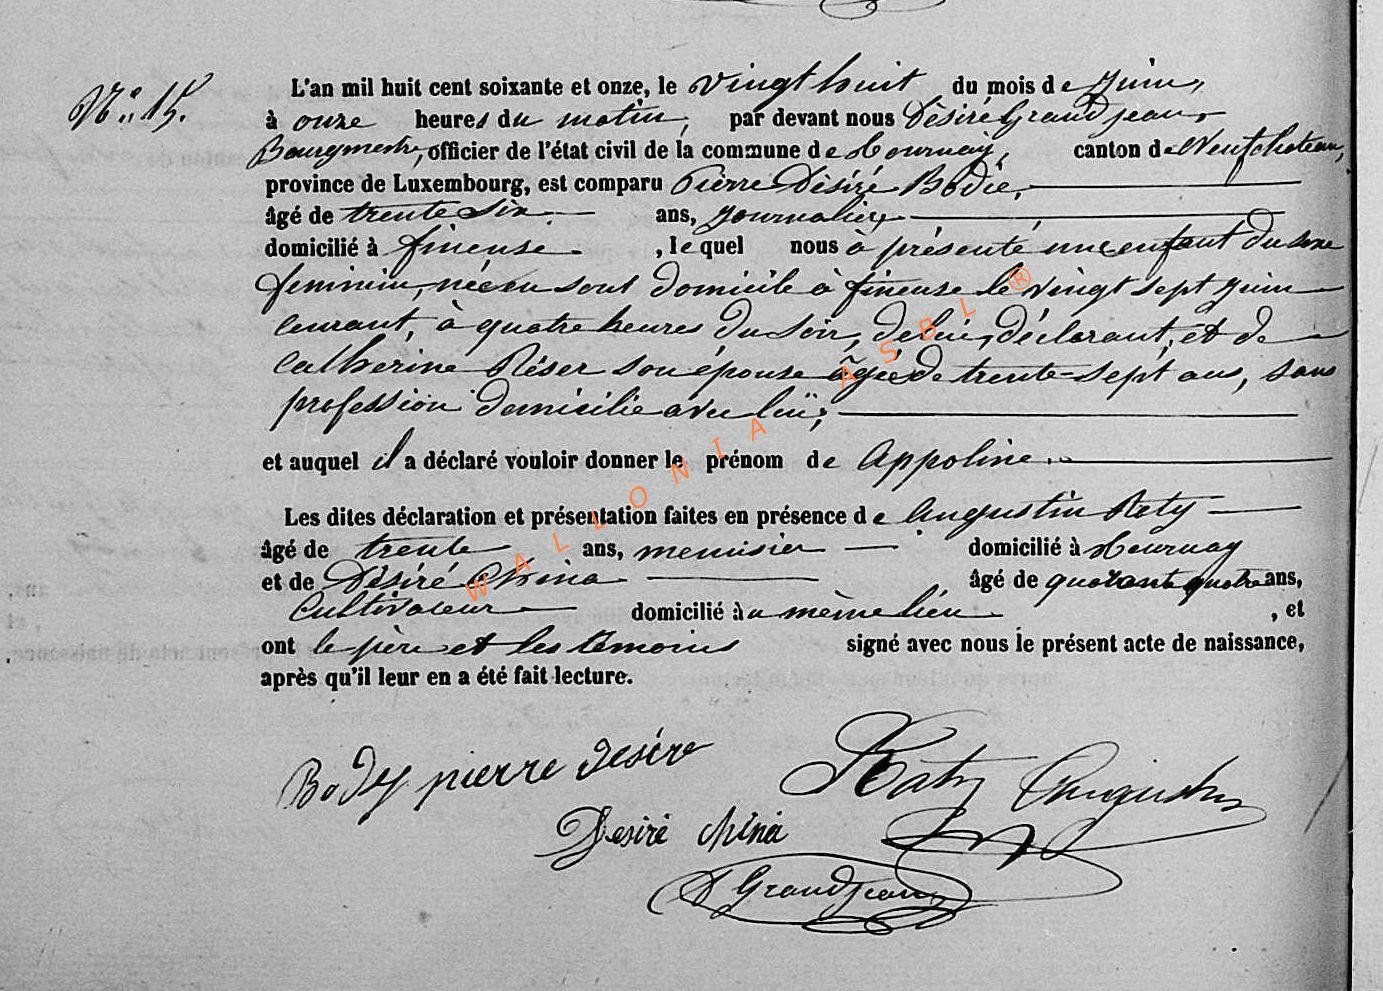 N° 15.
L'an mil huit cent soixante et onze, le vingt huit du mois de juin,
à onze heures du matin, par devant nous Désiré Grandjean,
Bourgmestre, officier de l'état civil de la commune de Tournay, canton de Neufchateau,
province de Luxembourg, est comparu Pierre Désiré Bodié,
âgé de trente six ans, journalier,
domicilié à fineuse , lequel nous à présenté une enfant du sexe
féminin, née en sout domicile à fineuse le vingt sept juin
courant, à quatre heures du soir, de lui, déclarant, et de
Catherine Réser son épouse âgée de trente-sept ans, sans
profession domicilie avec lui;
et auquel il a déclaré vouloir donner le prénom de Appoline.
Les dites déclaration et présentation faites en présence de Augustin Roty
âgé de trente ans, menuisier domicilié à Tournay
et de Désiré China âgé de quarante quatre ans,
Cultivateur domicilié au même lieu , et
ont le père et les témoins signé avec nous le présent acte de naissance,
après qu'il leur en a été fait lecture.
Body pierre desire
Raty Augustin
Desiré china
D Grandjean
WALLONIA ASBL ®